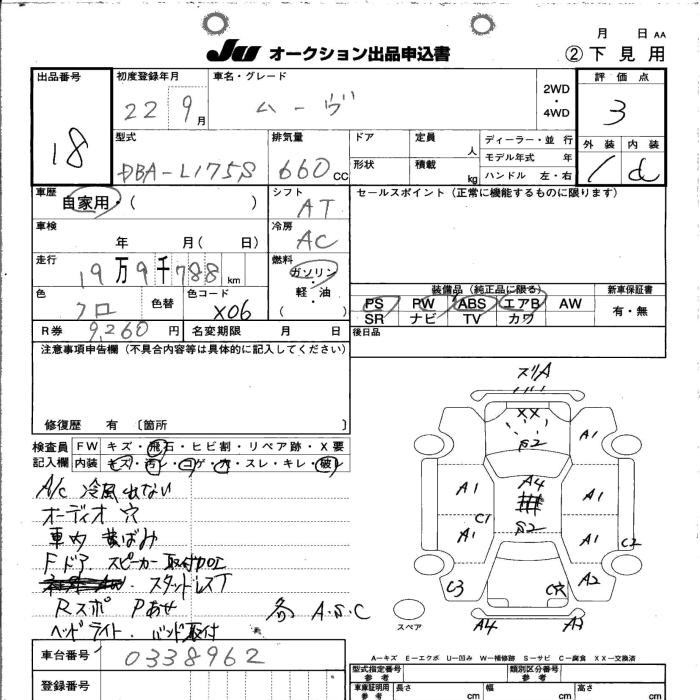 JU オークション出品申込書
月 日 AA
② 下見用
出品番号 18
初度登録年月 22 9月
車名・グレード ムーヴ
2WD・4WD
評価点 3
外装 内装
型式 DBA-L175S
排気量 660cc
ドア 定員 人
形状 積載 kg
ディーラー・並行
モデル年式 年
ハンドル 左・右
車歴 自家用・( )
シフト AT
セールスポイント(正常に機能するものに限ります)
車検 年 月( 日)
冷房 AC
走行 19万9千788km
燃料 ガソリン・軽・油 ( )
色 クロ 色替 色コード X06
装備品(純正品に限る) 新車保証書
PS PW ABS エアB AW 有・無
SR ナビ TV カワ
R券 9,260円 名変期限 月 日
後日品
注意事項申告欄(不具合内容等は具体的に記入してください)
修復歴 有 〔箇所 〕
検査員記入欄
FW キズ・飛石・ヒビ割・リペア跡・X要
内装 キズ・汚レ・コゲ・穴・スレ・キレ・破レ
A/C 冷風出ない
オーディオ 穴
車内 黄ばみ
Fドア.スピーカー取付加工
スタッドレスT
Rスポ Pあせ 各 A.S.C
ヘッドライト.バンド取付
ズリA
XX
S2
A1
A1 A4 A1
C1
A1 S2 A1 C2
C3 C穴 A2
スペア
A4
A-キズ E-エクボ U-凹み W-補修跡 S-サビ C-腐食 XX-交換済
車台番号 0338962
型式指定番号 参考 類別区分番号 参考
登録番号
車庫証明用 参考 長さ cm 幅 cm 高さ cm